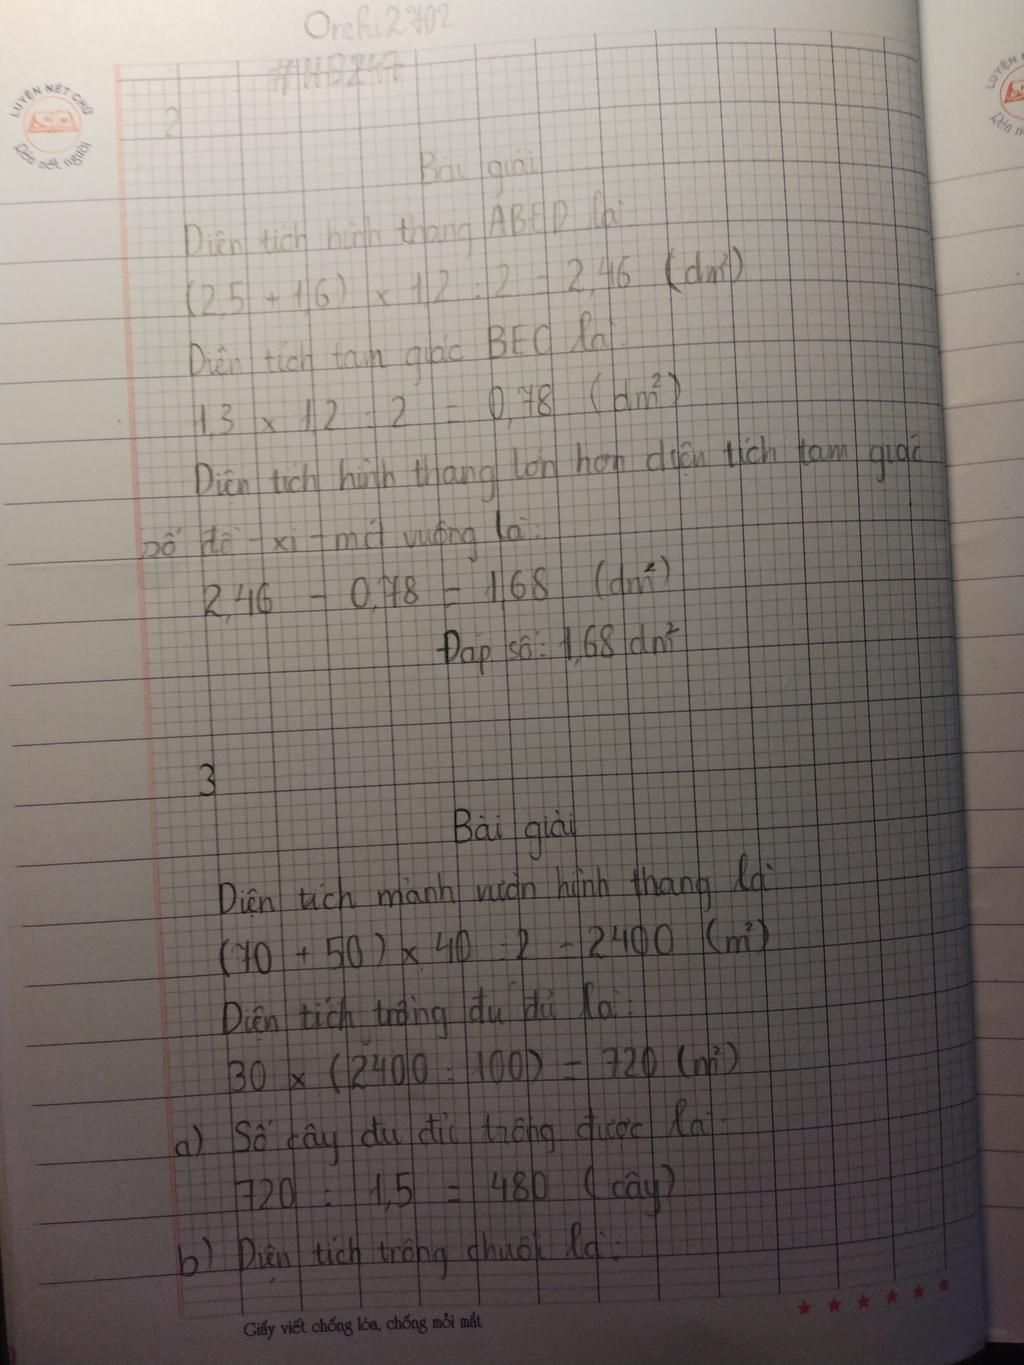 Orchi2702
LUYỆN NÉT CHỮ
Rèn nết người
2
Bài giải
Diện tích hình thang ABED là:
(2,5 + 1,6) x 1,2 : 2 = 2,46 (dm²)
Diện tích tam giác BEC là:
1,3 x 1,2 : 2 = 0,78 (dm²)
Diện tích hình thang lớn hơn diện tích tam giác
số đề-xi-mét vuông là:
2,46 - 0,78 = 1,68 (dm²)
Đáp số: 1,68 dm²
3
Bài giải
Diện tích mảnh vườn hình thang là:
(70 + 50) x 40 : 2 = 2400 (m²)
Diện tích trồng đu đủ là:
30 x (2400 : 100) = 720 (m²)
a) Số cây đu đủ trồng được là:
720 : 1,5 = 480 (cây)
b) Diện tích trồng chuối là:
Giấy viết chống lóa, chống mỏi mắt